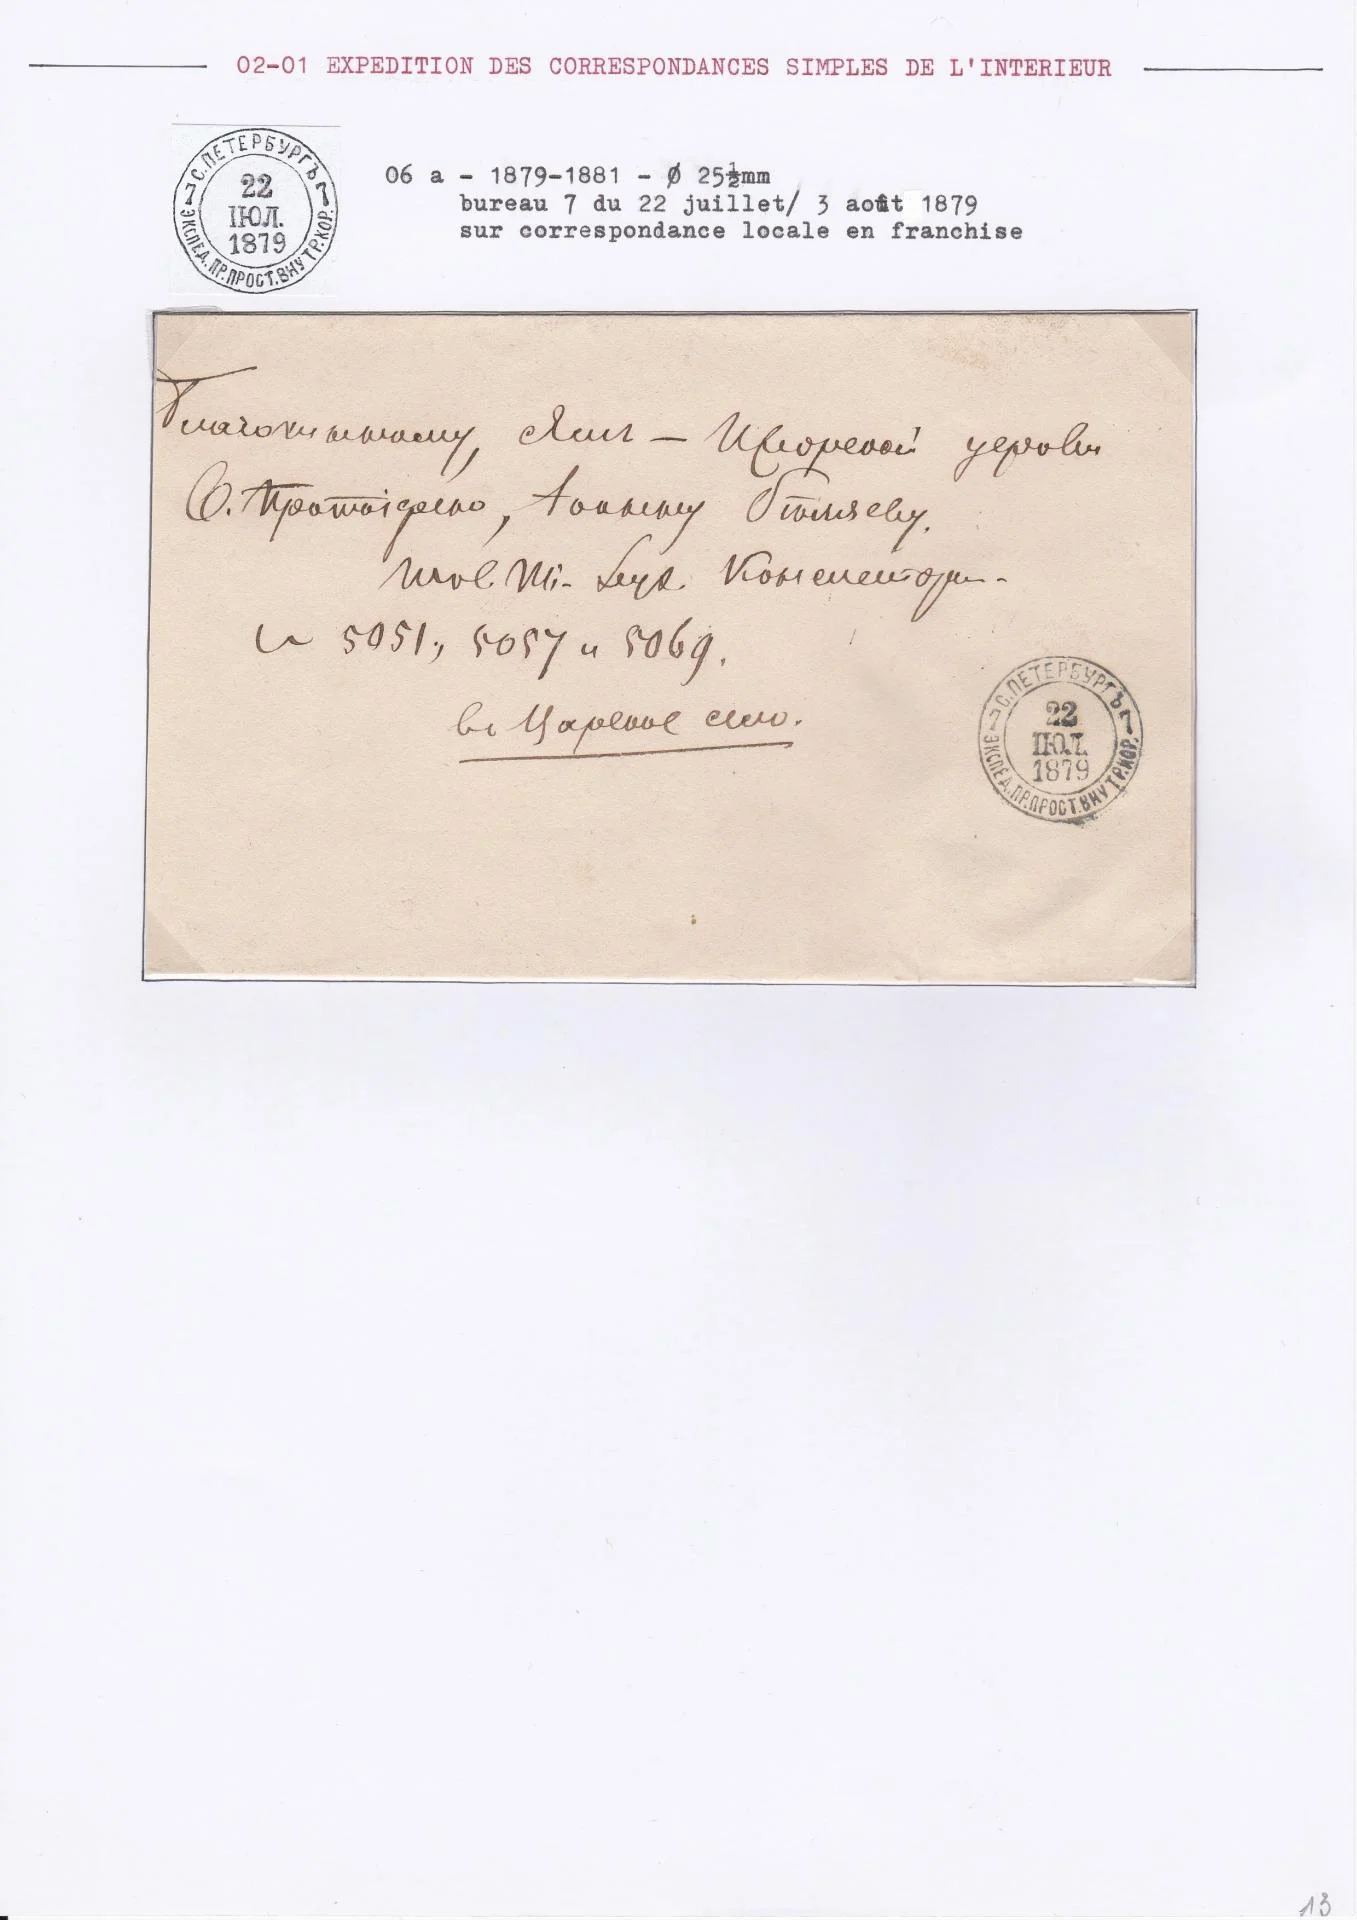 02-01 EXPEDITION DES CORRESPONDANCES SIMPLES DE L'INTERIEUR
С.ПЕТЕРБУРГЪ
7 7
22
ІЮЛ.
1879
ЭКСПЕД.ПР.ПРОСТ.ВНУТР.КОР.
06 a - 1879-1881 - Ø 25½mm
bureau 7 du 22 juillet/ 3 août 1879
sur correspondance locale en franchise
Благочинному, Ямъ - Ижорской церкви
О. Протоіерею,
5051, 5057 и 5069.
въ Царское село.
С.ПЕТЕРБУРГЪ
7 7
22
ІЮЛ.
1879
ЭКСПЕД.ПР.ПРОСТ.ВНУТР.КОР.
13